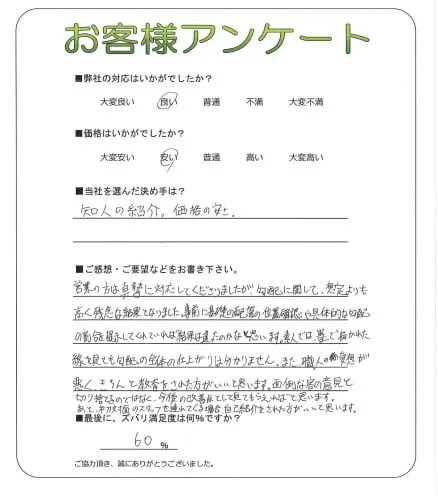 お客様アンケート
■弊社の対応はいかがでしたか？
大変良い 良い 普通 不満 大変不満
■価格はいかがでしたか？
大変安い 安い 普通 高い 大変高い
■当社を選んだ決め手は？
知人の紹介。価格の安さ。
■ご感想・ご要望などをお書き下さい。
営業の方は真摯に対応してくださりましたが勾配に関して、想定よりも
高く残念な結果となりました。事前に基礎の配管の位置確認や具体的な勾配
の勾合を提示してくれていれば結果は違たのかなと思います。素人では、墨で書かれた
線を見ても勾配の全体の仕上がりは分かりません。また、職人の が
悪く、きちんと教育をされた方がいいと思います。面倒な客の意見と
切り捨てるのではなく、今後の改善点として見てもらえればと思います。
あと、初対面のスタッフを連れてくる場合、自己紹介をされた方がいいと思います。
■最後に、ズバリ満足度は何%ですか？
60 %
ご協力頂き、誠にありがとうございました。